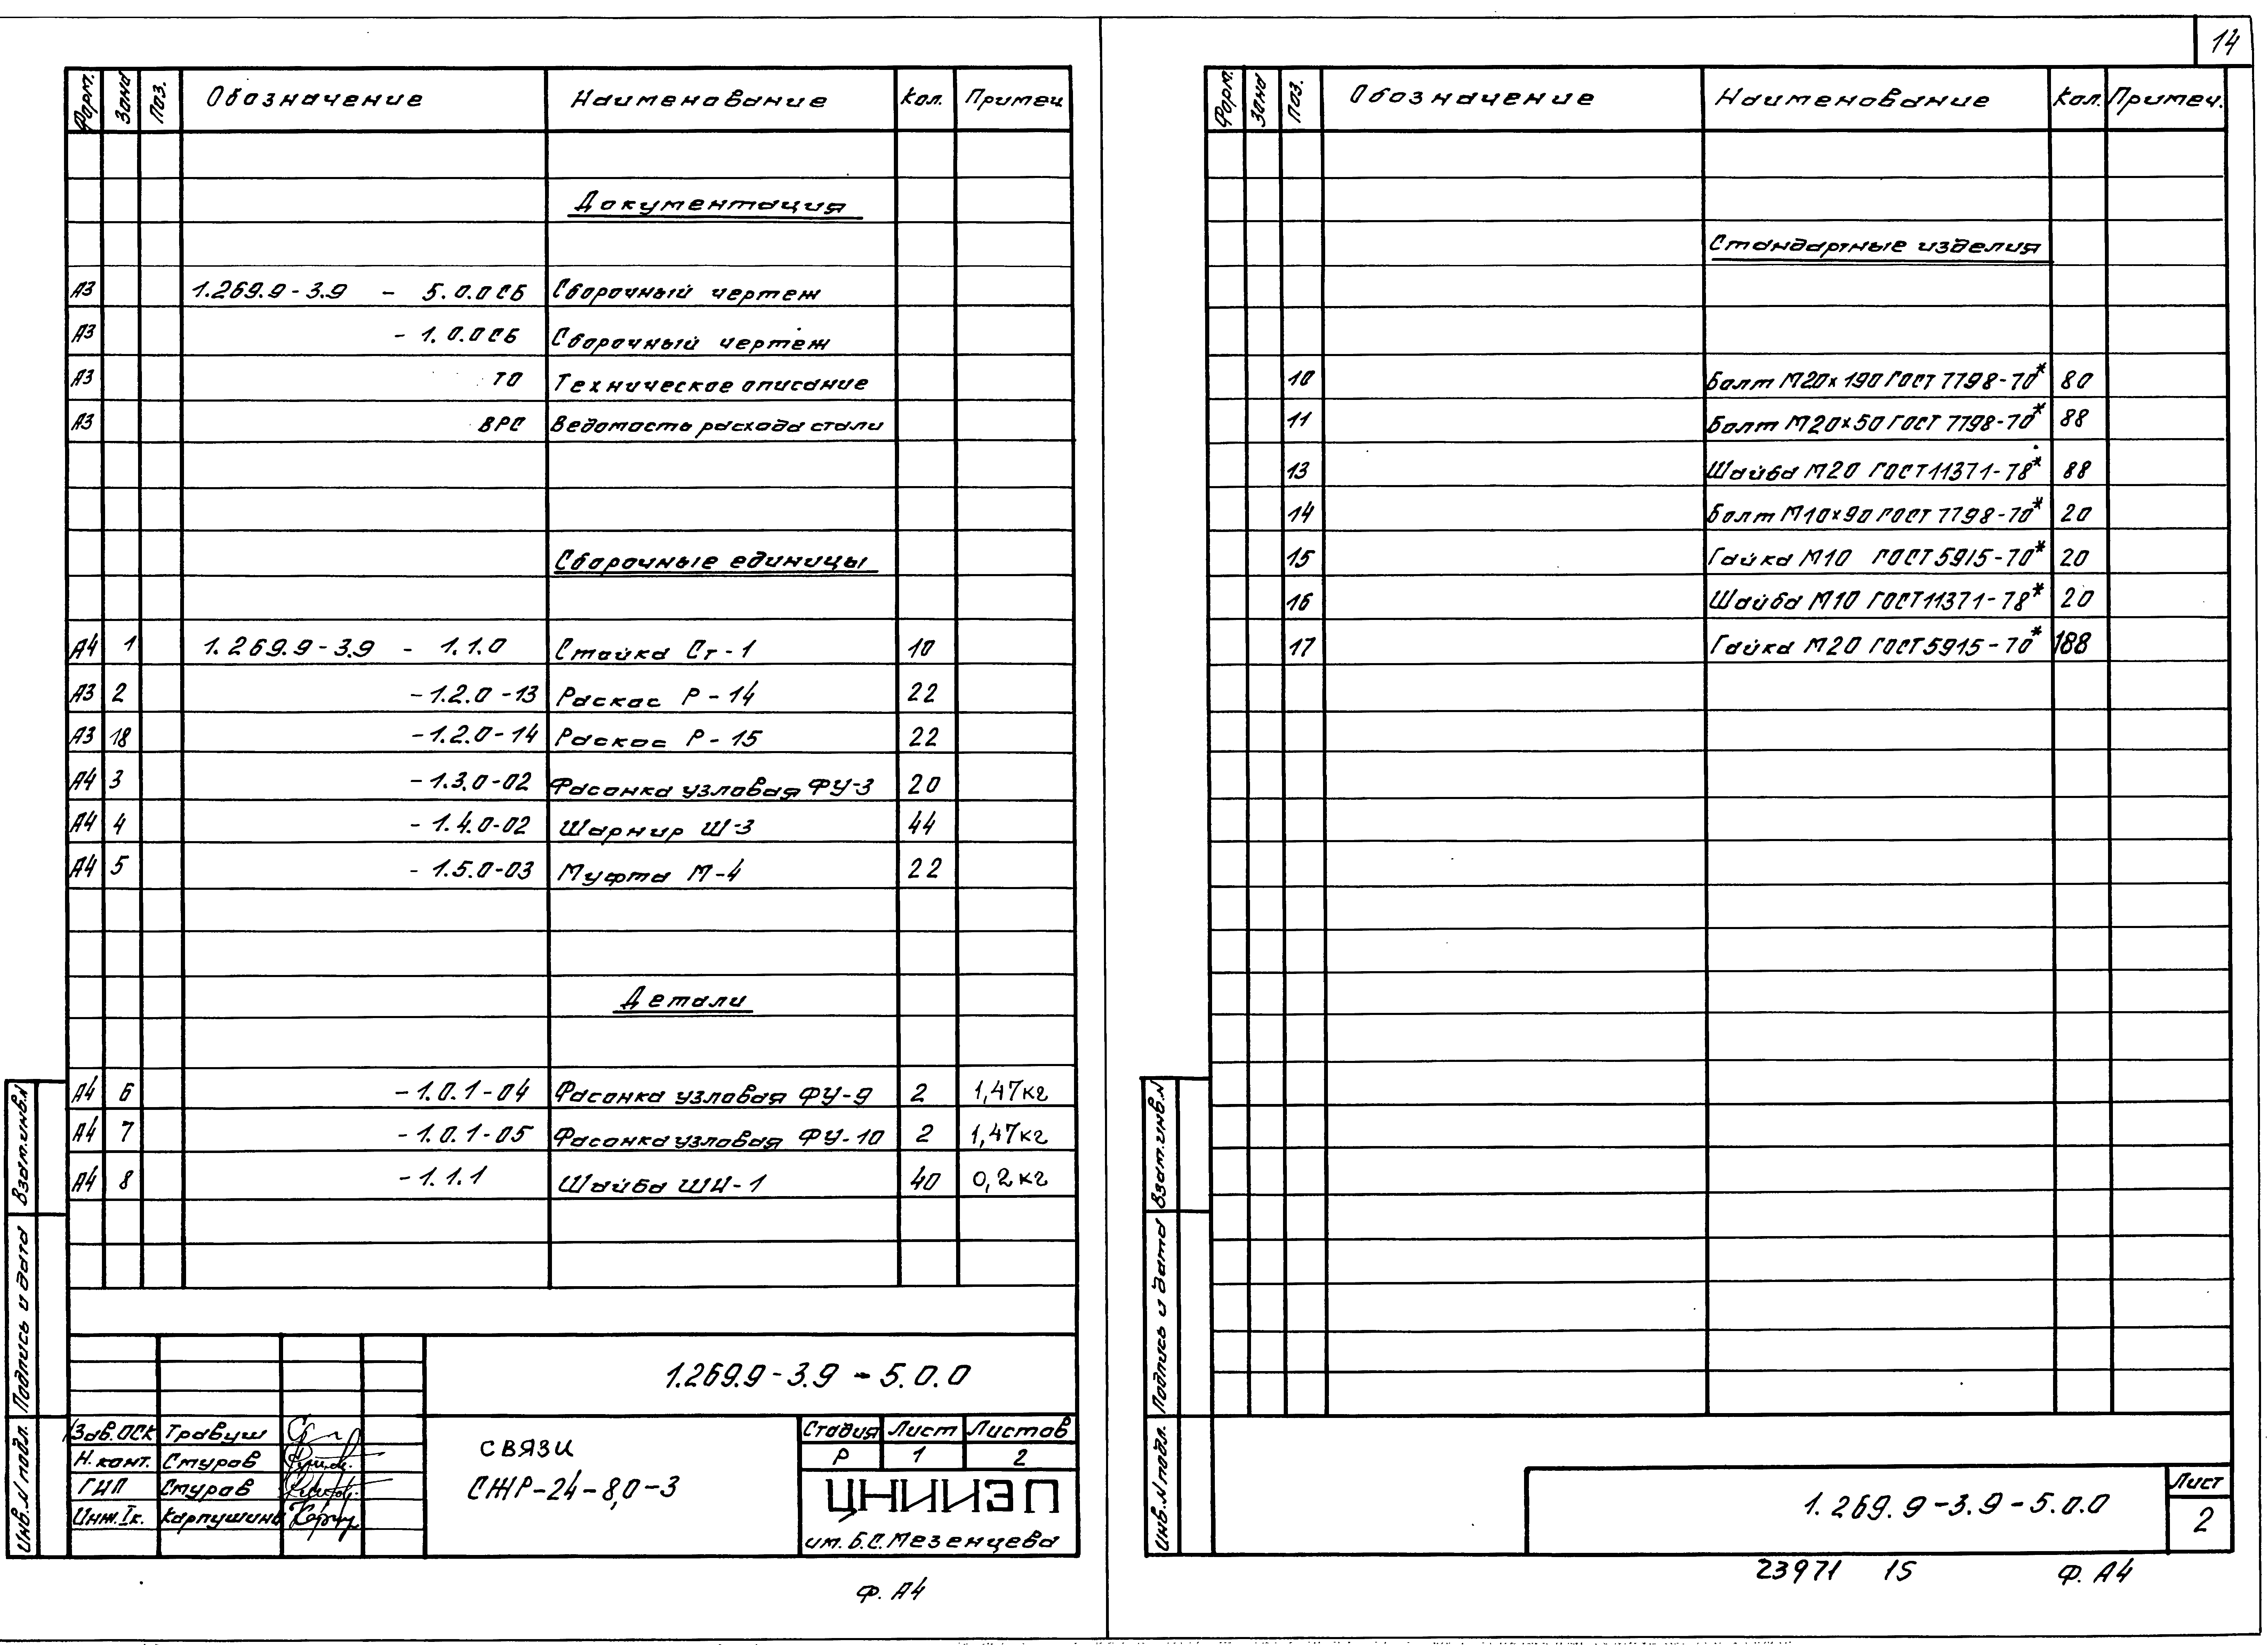 14
Форм. Зона Поз. Обозначение Наименование Кол. Примеч
Документация
А3 1.269.9-3.9 - 5.0.0СБ Сборочный чертеж
А3 - 1.0.0СБ Сборочный чертеж
А3 ТО Техническое описание
А3 ВРС Ведомость расхода стали
Сборочные единицы
А4 1 1.269.9-3.9 - 1.1.0 Стойка Ст-1 10
А3 2 -1.2.0-13 Раскос Р-14 22
А3 18 -1.2.0-14 Раскос Р-15 22
А4 3 -1.3.0-02 Фасонка узловая ФУ-3 20
А4 4 -1.4.0-02 Шарнир Ш-3 44
А4 5 -1.5.0-03 Муфта М-4 22
Детали
А4 6 -1.0.1-04 Фасонка узловая ФУ-9 2 1,47кг
А4 7 -1.0.1-05 Фасонка узловая ФУ-10 2 1,47кг
А4 8 -1.1.1 Шайба ШИ-1 40 0,2кг
1.269.9-3.9-5.0.0
Зав.ОСК Травуш
Н.конт. Стуров
ГИП Стуров
Инж.Iк. Карпушина
СВЯЗИ
СЖР-24-8,0-3
Стадия Лист Листов
Р 1 2
ЦНИИЭП
им. Б.С.Мезенцева
Инв.N подл. Подпись и дата Взам.инв.N
Ф. А4
Форм. Зона Поз. Обозначение Наименование Кол. Примеч.
Стандартные изделия
10 Болт М20×190 ГОСТ 7798-70* 80
11 Болт М20×50 ГОСТ 7798-70* 88
13 Шайба М20 ГОСТ 11371-78* 88
14 Болт М10×90 ГОСТ 7798-70* 20
15 Гайка М10 ГОСТ 5915-70* 20
16 Шайба М10 ГОСТ 11371-78* 20
17 Гайка М20 ГОСТ 5915-70* 188
Инв.N подл. Подпись и дата Взам.инв.N
1.269.9-3.9-5.0.0
Лист
2
23971 15 Ф. А4